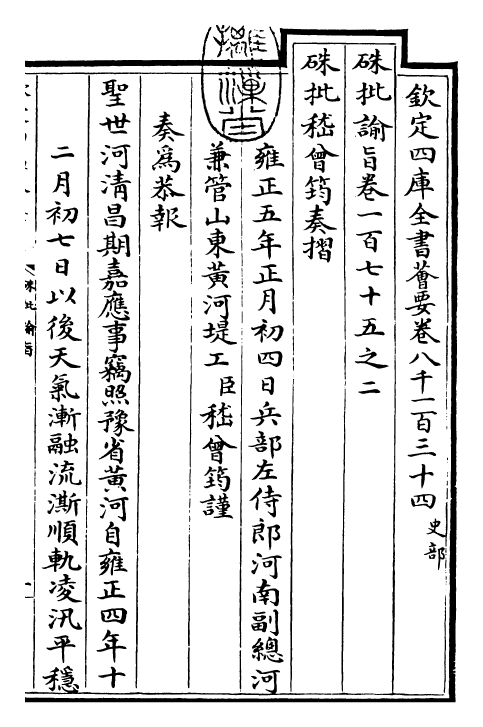 欽定四庫全書薈要卷八千一百三十四 史部
硃批諭旨卷一百七十五之二
硃批嵇曾筠奏摺
雍正五年正月初四日兵部左侍郎河南副總河
兼管山東黃河堤工臣嵇曾筠謹
奏為恭報
聖世河清昌期嘉應事竊照豫省黃河自雍正四年十
二月初七日以後天氣漸融流澌順軌凌汛平穩
硃批諭旨
一